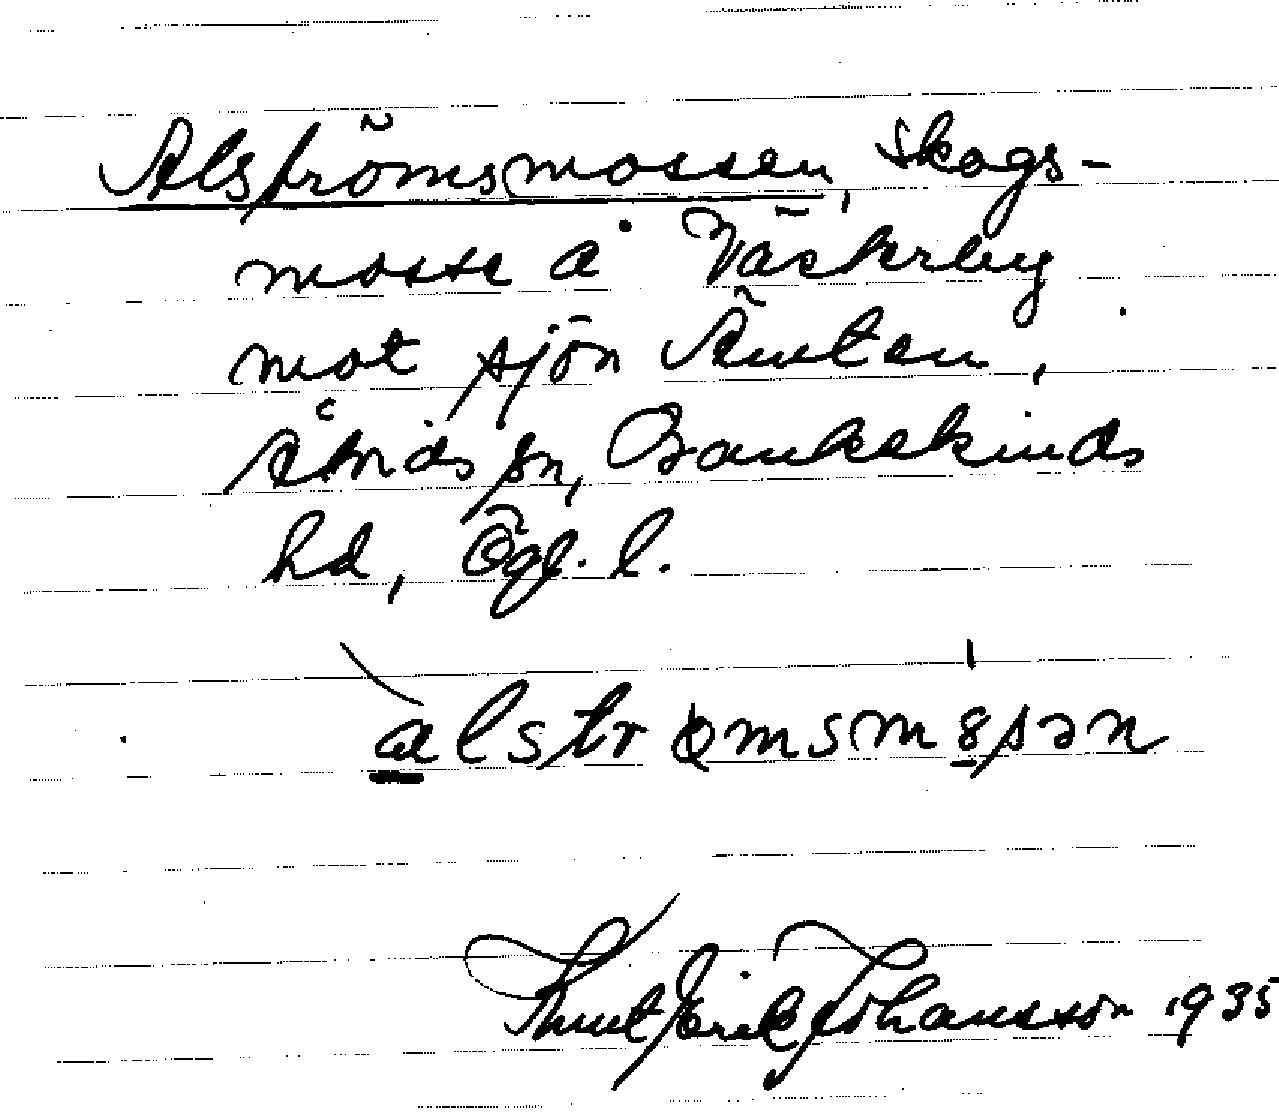 Alströmsmossen, Skogs-
mosse å Västerby
mot sjön
Åtvids sn, Bankekinds
hd, Ögl. l.
alstrømsm8sən
Knut Erik Johansson 1935